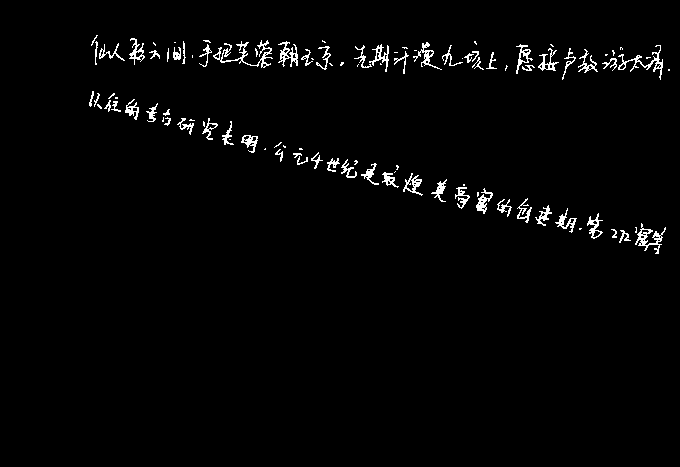 仙人彩云间,手把芙蓉朝玉京。先期汗漫九垓上,愿接卢敖游太清。
以往的考古研究表明,公元4世纪是敦煌莫高窟的创建期,第272窟等